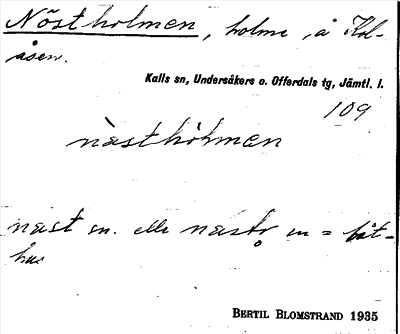 Nöstholmen, holme å Kol-
åsen.
Kalls sn, Undersåkers o. Offerdals tg, Jämtl. l.
109
næsthòlmen
næst en. elle næstọ en = båt-
hus
BERTIL BLOMSTRAND 1935